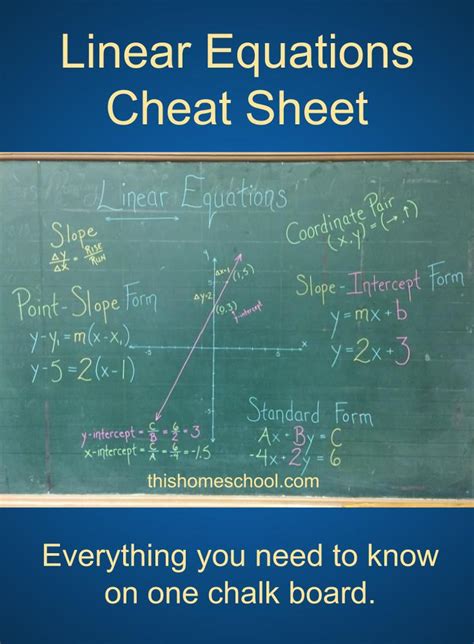 Linear Equations
Cheat Sheet
Linear Equations
Slope
Δy/Δx = RISE/RUN
Coordinate Pair
(x,y)=(→,↑)
Point-Slope Form
y-y₁=m(x-x₁)
y-5=2(x-1)
Δx=1
(1,5)
Δy=2
(0,3)
y-intercept
Slope-Intercept Form
y=mx+b
y=2x+3
y
x
-5
5
5
-5
y-intercept = C/B = 6/2 = 3
x-intercept = C/A = 6/-4 = -1.5
Standard Form
Ax-By=C
-4x+2y=6
thishomeschool.com
Everything you need to know
on one chalk board.